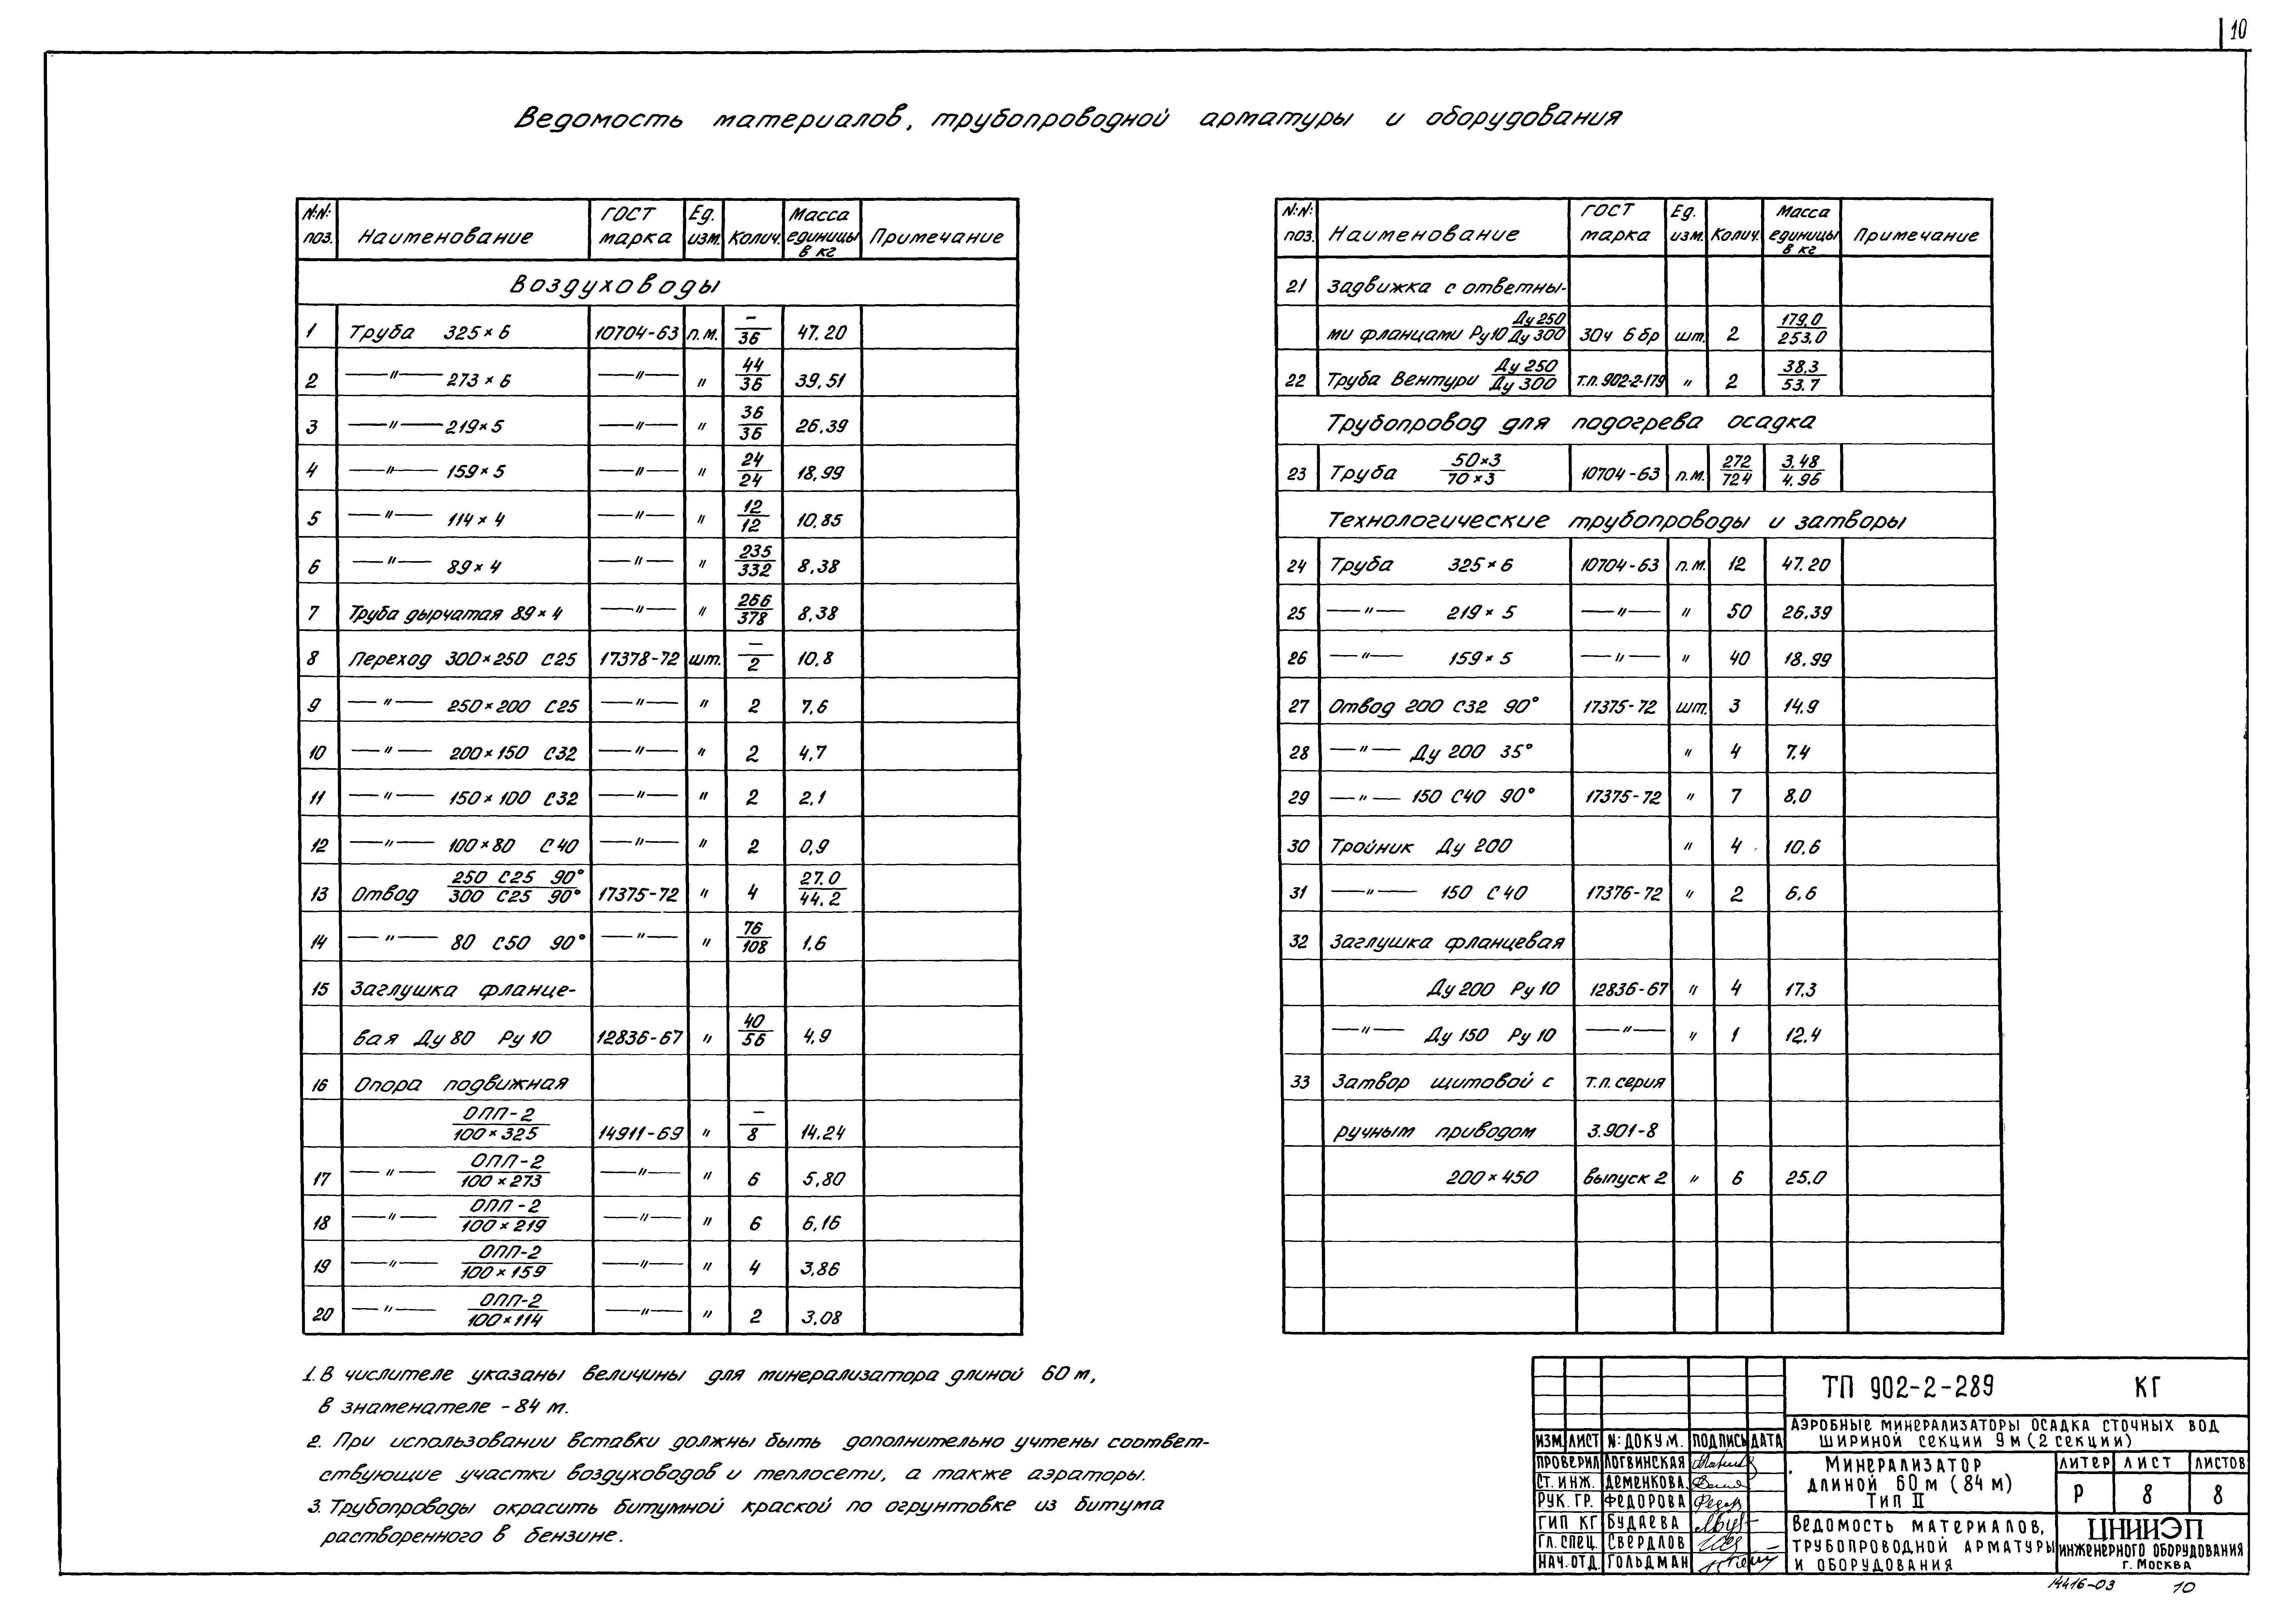 10
Ведомость материалов, трубопроводной арматуры и оборудования
№№ поз. | Наименование | ГОСТ марка | Ед. изм. | Колич. | Масса единицы в кг | Примечание
Воздуховоды
1 | Труба 325×6 | 10704-63 | п.м. | –/36 | 47.20
2 | —"— 273×6 | —"— | " | 44/36 | 39,51
3 | —"— 219×5 | —"— | " | 36/36 | 26,39
4 | —"— 159×5 | —"— | " | 24/24 | 18,99
5 | —"— 114×4 | —"— | " | 12/12 | 10,85
6 | —"— 89×4 | —"— | " | 235/332 | 8,38
7 | Труба дырчатая 89×4 | —"— | " | 266/378 | 8,38
8 | Переход 300×250 С25 | 17378-72 | шт. | –/2 | 10,8
9 | —"— 250×200 С25 | —"— | " | 2 | 7,6
10 | —"— 200×150 С32 | —"— | " | 2 | 4,7
11 | —"— 150×100 С32 | —"— | " | 2 | 2,1
12 | —"— 100×80 С40 | —"— | " | 2 | 0,9
13 | Отвод 250 С25 90°/300 С25 90° | 17375-72 | " | 4 | 27.0/44.2
14 | —"— 80 С50 90° | —"— | " | 76/108 | 1,6
15 | Заглушка фланце-
вая Ду 80 Ру 10 | 12836-67 | " | 40/56 | 4,9
16 | Опора подвижная
ОПП-2/100×325 | 14911-69 | " | –/8 | 14.24
17 | —"— ОПП-2/100×273 | —"— | " | 6 | 5,80
18 | —"— ОПП-2/100×219 | —"— | " | 6 | 6,16
19 | —"— ОПП-2/100×159 | —"— | " | 4 | 3,86
20 | —"— ОПП-2/100×114 | —"— | " | 2 | 3,08
№№ поз. | Наименование | ГОСТ марка | Ед. изм. | Колич. | Масса единицы в кг | Примечание
21 | Задвижка с ответны-
ми фланцами Ру10 Ду 250/Ду 300 | 30ч 6бр | шт. | 2 | 179.0/253.0
22 | Труба Вентури Ду 250/Ду 300 | т.п. 902-2-179 | " | 2 | 38.3/53.7
Трубопровод для подогрева осадка
23 | Труба 50×3/70×3 | 10704-63 | п.м. | 272/724 | 3.48/4.96
Технологические трубопроводы и затворы
24 | Труба 325×6 | 10704-63 | п.м. | 12 | 47.20
25 | —"— 219×5 | —"— | " | 50 | 26.39
26 | —"— 159×5 | —"— | " | 40 | 18.99
27 | Отвод 200 С32 90° | 17375-72 | шт. | 3 | 14.9
28 | —"— Ду 200 35° | " | 4 | 7.4
29 | —"— 150 С40 90° | 17375-72 | " | 7 | 8,0
30 | Тройник Ду 200 | " | 4 | 10.6
31 | —"— 150 С40 | 17376-72 | " | 2 | 6.6
32 | Заглушка фланцевая
Ду 200 Ру 10 | 12836-67 | " | 4 | 17.3
—"— Ду 150 Ру 10 | —"— | " | 1 | 12.4
33 | Затвор щитовой с | т.п. серия
ручным приводом | 3.901-8
200×450 | выпуск 2 | " | 6 | 25.0
1. В числителе указаны величины для минерализатора длиной 60 м,
в знаменателе - 84 м.
2. При использовании вставки должны быть дополнительно учтены соответ-
ствующие участки воздуховодов и теплосети, а также аэраторы.
3. Трубопроводы окрасить битумной краской по огрунтовке из битума
растворенного в бензине.
ТП 902-2-289 КГ
Аэробные минерализаторы осадка сточных вод
шириной секции 9 м (2 секции)
Изм. Лист №: докум. Подпись Дата
Проверил Логвинская
Ст. инж. Деменкова
Рук. гр. Федорова
ГИП КГ Будаева
Гл. спец. Свердлов
Нач. отд. Гольдман
Минерализатор
длиной 60 м (84 м)
Тип II
Литер Лист Листов
Р 8 8
Ведомость материалов,
трубопроводной арматуры
и оборудования
ЦНИИЭП
инженерного оборудования
г. Москва
14416-03 10